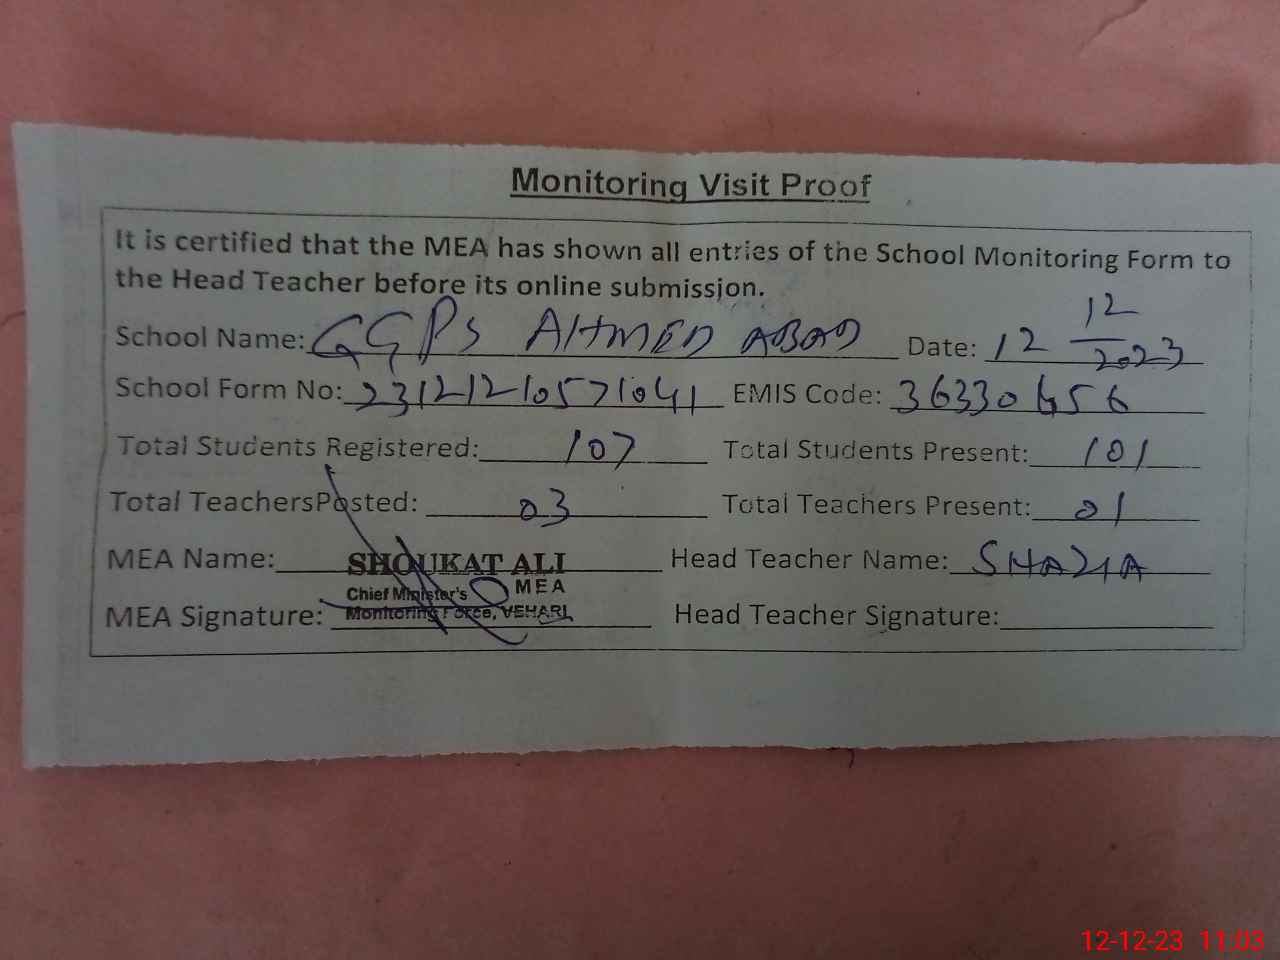 Monitoring Visit Proof
It is certified that the MEA has shown all entries of the School Monitoring Form to
the Head Teacher before its online submission.
School Name: GGPS AHMED ABAD Date: 12 12/2023
School Form No: 23121210571041 EMIS Code: 36330656
Total Students Registered: 107 Total Students Present: 101
Total TeachersPosted: 03 Total Teachers Present: 01
MEA Name: SHOUKAT ALI Head Teacher Name: SHAZIA
Chief Minister's MEA
MEA Signature: Monitoring Force, VEHARI Head Teacher Signature:
12-12-23 11:03